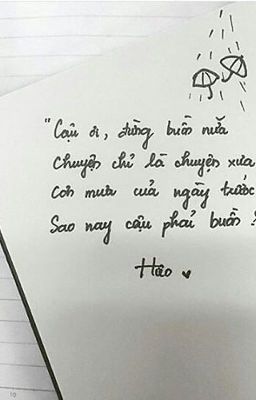 "Cậu ơi, đừng buồn nữa
Chuyện chỉ là chuyện xưa
Cơn mưa của ngày trước
Sao nay cậu phải buồn?
Hảo
10